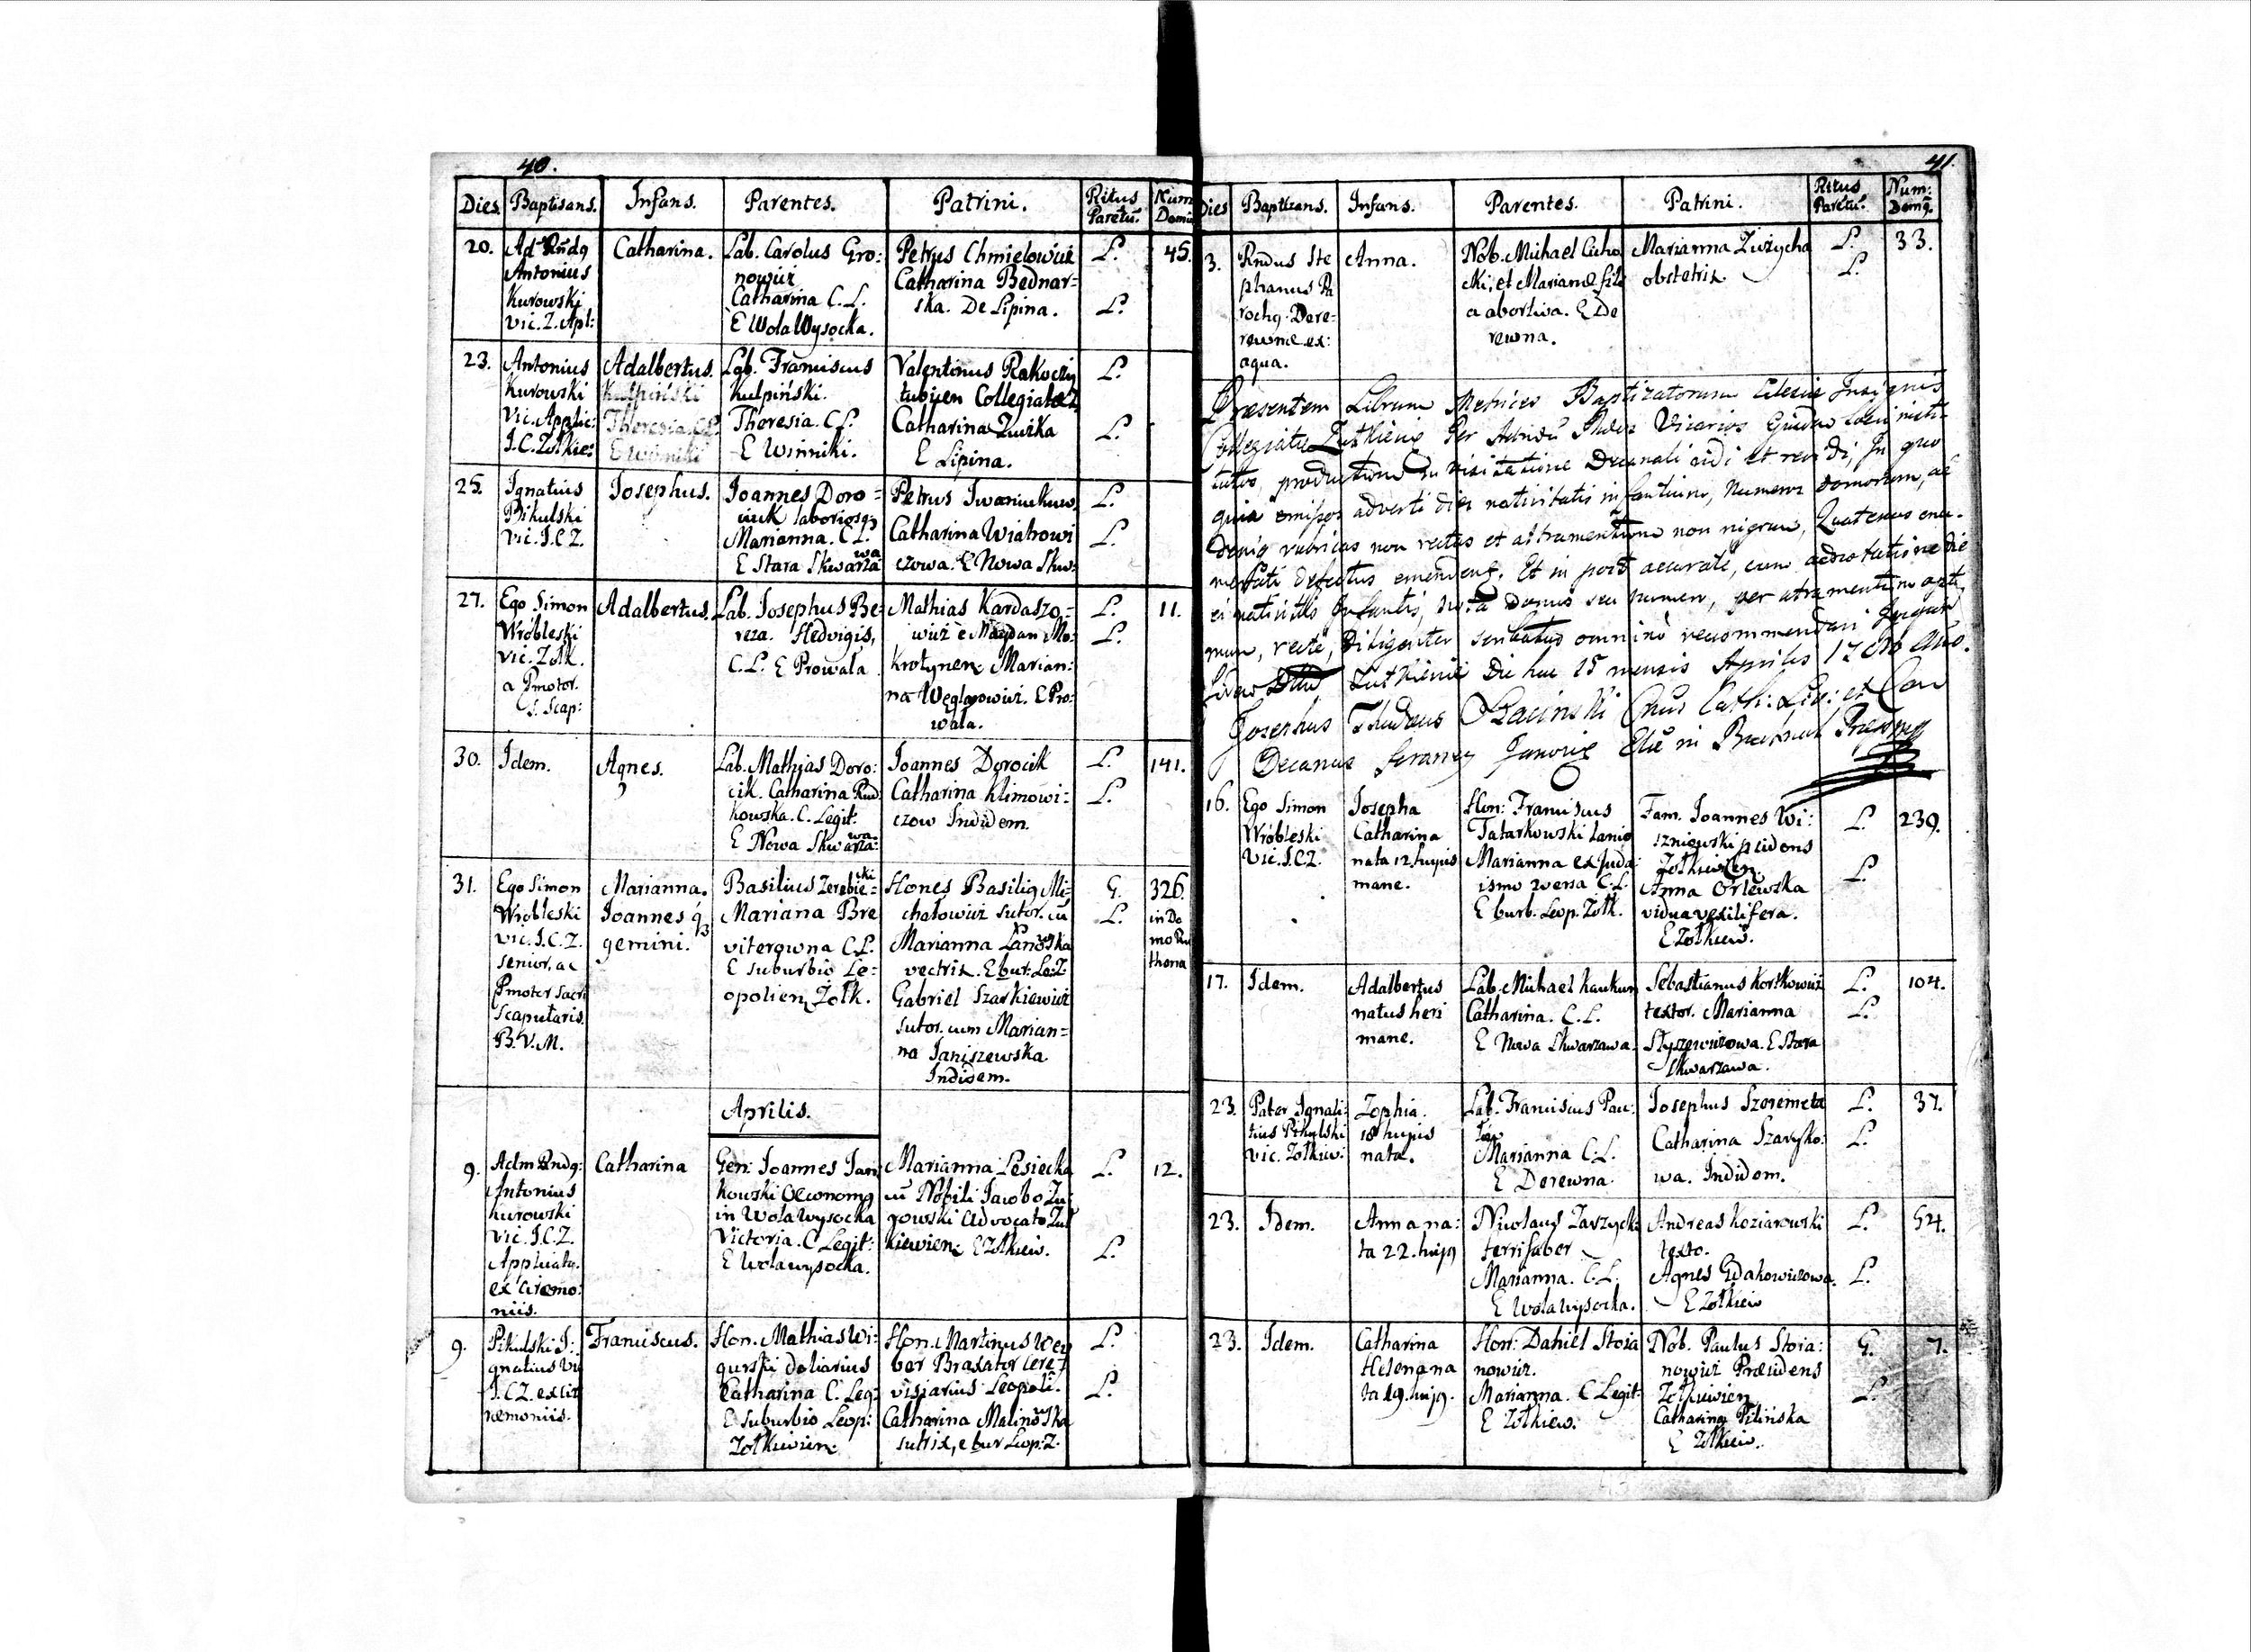 40.
Dies. Baptisans. Infans. Parentes. Patrini. Ritus Parētū. Num Domū
20. Ad Rndq Antonius Kurowski Vic. Z. Apl:
Catharina.
Lab. Carolus Gro:
nowicz
Catharina C. L.
E Wola Wysocka.
Petrus Chmielowicz
Catharina Bednar=
ska. De Lipina.
L.
L.
45.
23. Antonius
Kurowski
Vic. Applic:
I. C. Zolkie:
Adalbertus.
Kulpiński
Theresia C.L.
E Winniki
Lab. Franciscus
Kulpiński.
Theresia. C. L.
E Winniki.
Valentinus Rakoczy
tubicen Collegiatæ Z.
Catharina Zwiżka
E Lipina.
L.
L.
25. Ignatius
Pikulski
Vic. I. C Z.
Josephus.
Joannes Doro=
cick laboriosq
Marianna. C L.
E Stara Skwarzawa
Petrus Iwaniukow
Catharina Wiatrowi
czowa. E Nowa Skw:
L.
L.
27. Ego Simon
Wróbleski
Vic. Zolk.
a Pmotor.
S. Scap:
Adalbertus.
Lab. Josephus Be=
reza. Hedvigis,
C. L. E Prowala
Mathias Kardaszo=
wicz e Maydan Mo:
krotynen: Marian:
na Węglarowicz. E Pro:
wala.
L.
L.
11.
30. Idem.
Agnes.
Lab. Mathias Doro:
cik. Catharina Rud
kowska. C. Legit:
E Nowa Skwarzawa
Joannes Dorocik
Catharina Klimowi:
czow Indidem.
L.
L.
141.
31. Ego Simon
Wróbleski
Vic. I. C. Z.
senior, ac
Pmotor Sacri
Scapularis.
B. V. M.
Marianna.
Joannes q
gemini.
Basilius Zerebie=cki
Mariana Bre
viterowna C L.
E suburbio Le=
opolien Żolk.
Hones Basiliq Mi=
chalowicz sutor. cū
Marianna Łanowska
vectrix. E bur: Le: Z.
Gabriel Szarkiewicz
sutor. cum Marian=
na Janiszewska
Indidem.
G.
L.
326.
in Do
mo Ru
thena
Aprilis.
9. Adm Rndq:
Antonius
Kurowski
Vic. I. C. Z.
Applicatq.
ex cæremo:
niis.
Catharina
Gen: Joannes Jan
kowski Œconomq
in Wola Wysocka
Victoria. C Legit:
E Wola wysocka.
Marianna Lesiecka
cū Nobili Jacobo Zu:
gowski Advocato Zul
kiewien: E Zolkiew.
L.
L.
12.
9. Pikulski I:
gnatius Vic
I. C Z. ex cæ
remoniis.
Franciscus.
Hon. Mathias Wi:
gurski doliarius
Catharina C. Leg:
E suburbio Leop:
Zolkiewien:
Hon. Martinus Wey
ber Braxator Cere=
visiarius Leopoli.
Catharina Malinowska
sutrix, e bur Leop: Z.
L.
L.
41.
Dies Baptizans. Infans. Parentes. Patrini. Ritus Parētū. Num: Domq.
3. Rndus Ste
phanus Pa
rochq. Dere=
wnæ ex:
aqua.
Anna.
Nob. Michael Cicho
cki, et Marianæ fili
a abortiva. E De
rewna.
Marianna Ziżycha
obstetrix
L.
L.
33.
Præsentem Librum Metrices Baptizatorum Eclesiæ Insignis
Collegiatæ Zulkieviæ Per Vicarios Ejusdem loci insti-
tutos, productum in visitatione Decanali vidi et in quo
quia omissos adverti dies nativitatis infantium, Numeros domorum, ac
deniq rubricas non rectas et attramentum non nigrum, Quatenus enu-
merati defectus emendent. Et in post accurate, cum adnotatione die
ei nativitatis Infantis, nota domus seu numeri, per atramentum opti
mum, recte, Diligenter scribatur omninò recommendavi
Zulkieviæ Die hac 15 mensis Aprilis
Josephus Thadæus Cath: Leo: et Con
Decanus Janoviæ
16. Ego Simon
Wróbleski
Vic. I. C Z.
Josepha
Catharina
nata 12 hujus
mane.
Hon: Franciscus
Tatarkowski lanio
Marianna ex Juda
ismo versa C L.
E burb. Leop. Zolk.
Fam. Joannes Wi:
szniowski
Zolkiewien.
Anna Orlewska
vidua vexilifera.
E Zolkiew.
L.
L.
239.
17. Idem.
Adalbertus
natus heri
mane.
Lab. Michael Kaukun
Catharina. C. L.
E Nowa Skwarzawa.
Sebastianus Korłkowicz
textor. Marianna
Styszewiczowa. E Stara
Skwarzawa.
L.
L.
104.
23. Pater Ignati:
tius Pikulski
Vic. Zolkiew:
Zophia.
18 hujus
nata.
Lab. Franciscus Pau:
Marianna C. L.
E Derewna.
Josephus Szeremeta
Catharina Szarysko:
wa. Indidem.
L.
L.
37.
23. Idem.
Anna na:
ta 22. hujq
Nicolaus Zarzycki
ferrifaber
Marianna. C. L.
E Wola wysocka.
Andreas Koziarowski
texto.
Agnes Gdakowiczowa.
E Zolkiew
L.
L.
54.
23. Idem.
Catharina
Helena na
ta 19. hujq.
Hon: Daniel Stoia
nowicz.
Marianna. C Legit:
E Zolkiew.
Nob. Paulus Stoia:
nowicz Præsidens
Zolkiewien
Catharina Pilińska
E Zolkiew.
G.
L.
7.